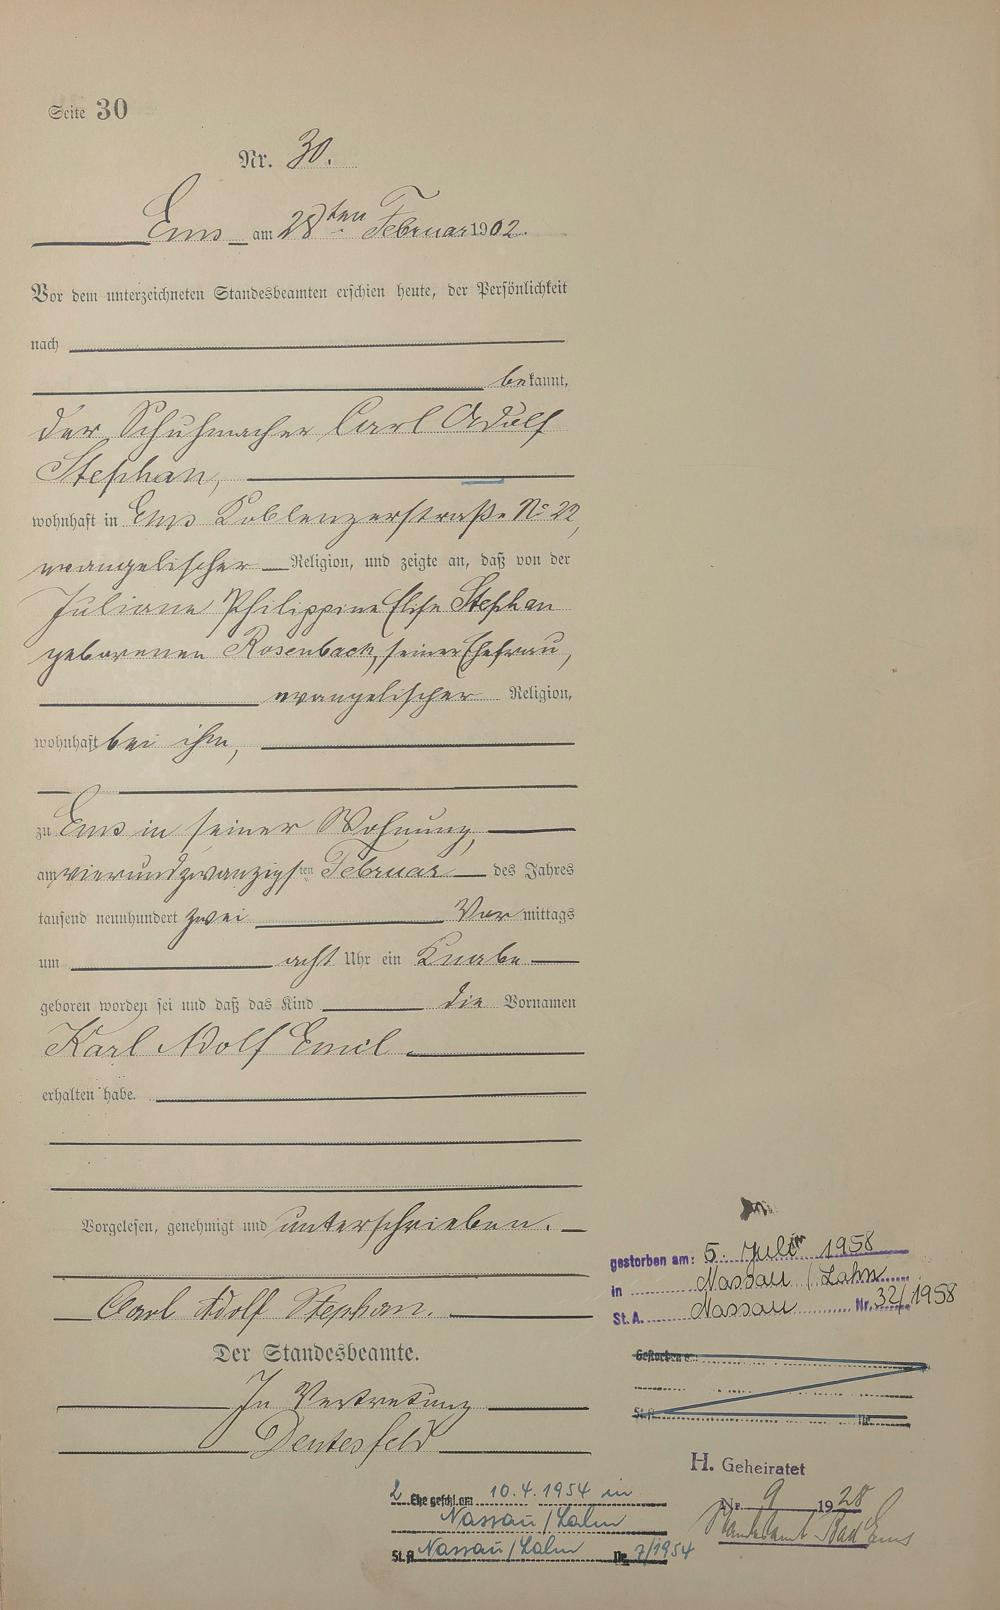 Seite 30
Nr. 30.
Ems am 28ten Februar 1902.
Vor dem unterzeichneten Standesbeamten erschien heute, der Persönlichkeit
nach
bekannt,
der Schuhmacher Carl Adolf
Stephan,
wohnhaft in Ems Koblenzerstraße No 22,
evangelischer Religion, und zeigte an, daß von der
Juliane Philippine Elise Stephan
geborenen Rosenbach, seiner Ehefrau,
evangelischer Religion,
wohnhaft bei ihm,
zu Ems in seiner Wohnung,
am vierundzwanzigsten Februar des Jahres
tausend neunhundert zwei Vor mittags
um acht Uhr ein Knabe
geboren worden sei und daß das Kind die Vornamen
Karl Adolf Emil
erhalten habe.
Vorgelesen, genehmigt und unterschrieben.
Carl Adolf Stephan.
Der Standesbeamte.
In Vertretung
gestorben am: 5. Juli 1958
in Nassau / Lahn
St. A. Nassau Nr. 32/1958
Gestorben
St. A. Nr.
H. Geheiratet
Nr. 9 1928
Standesamt Bad Ems
2 Ehe geschl. am 10.4.1954 in
Nassau / Lahn
St. A. Nassau / Lahn Nr. 7/1954